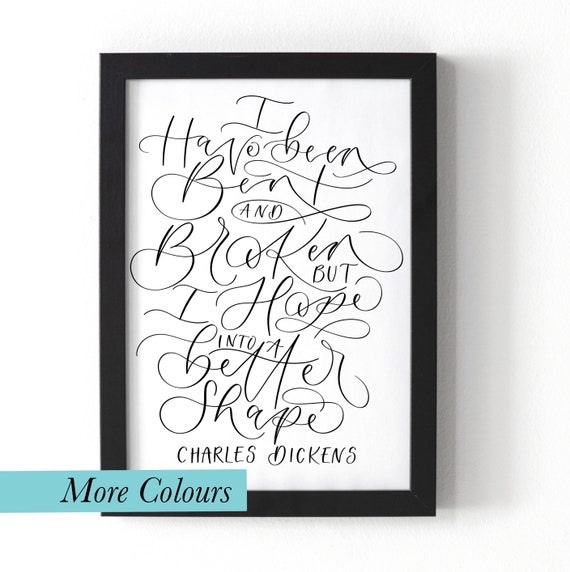 I
Have been
Bent
AND
Broken
BUT
I Hope
INTO A
better
Shape
CHARLES DICKENS
More Colours